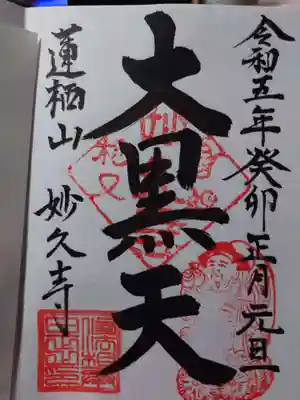 令和五年癸卯正月元旦
大黒天
蓮栖山 妙久寺